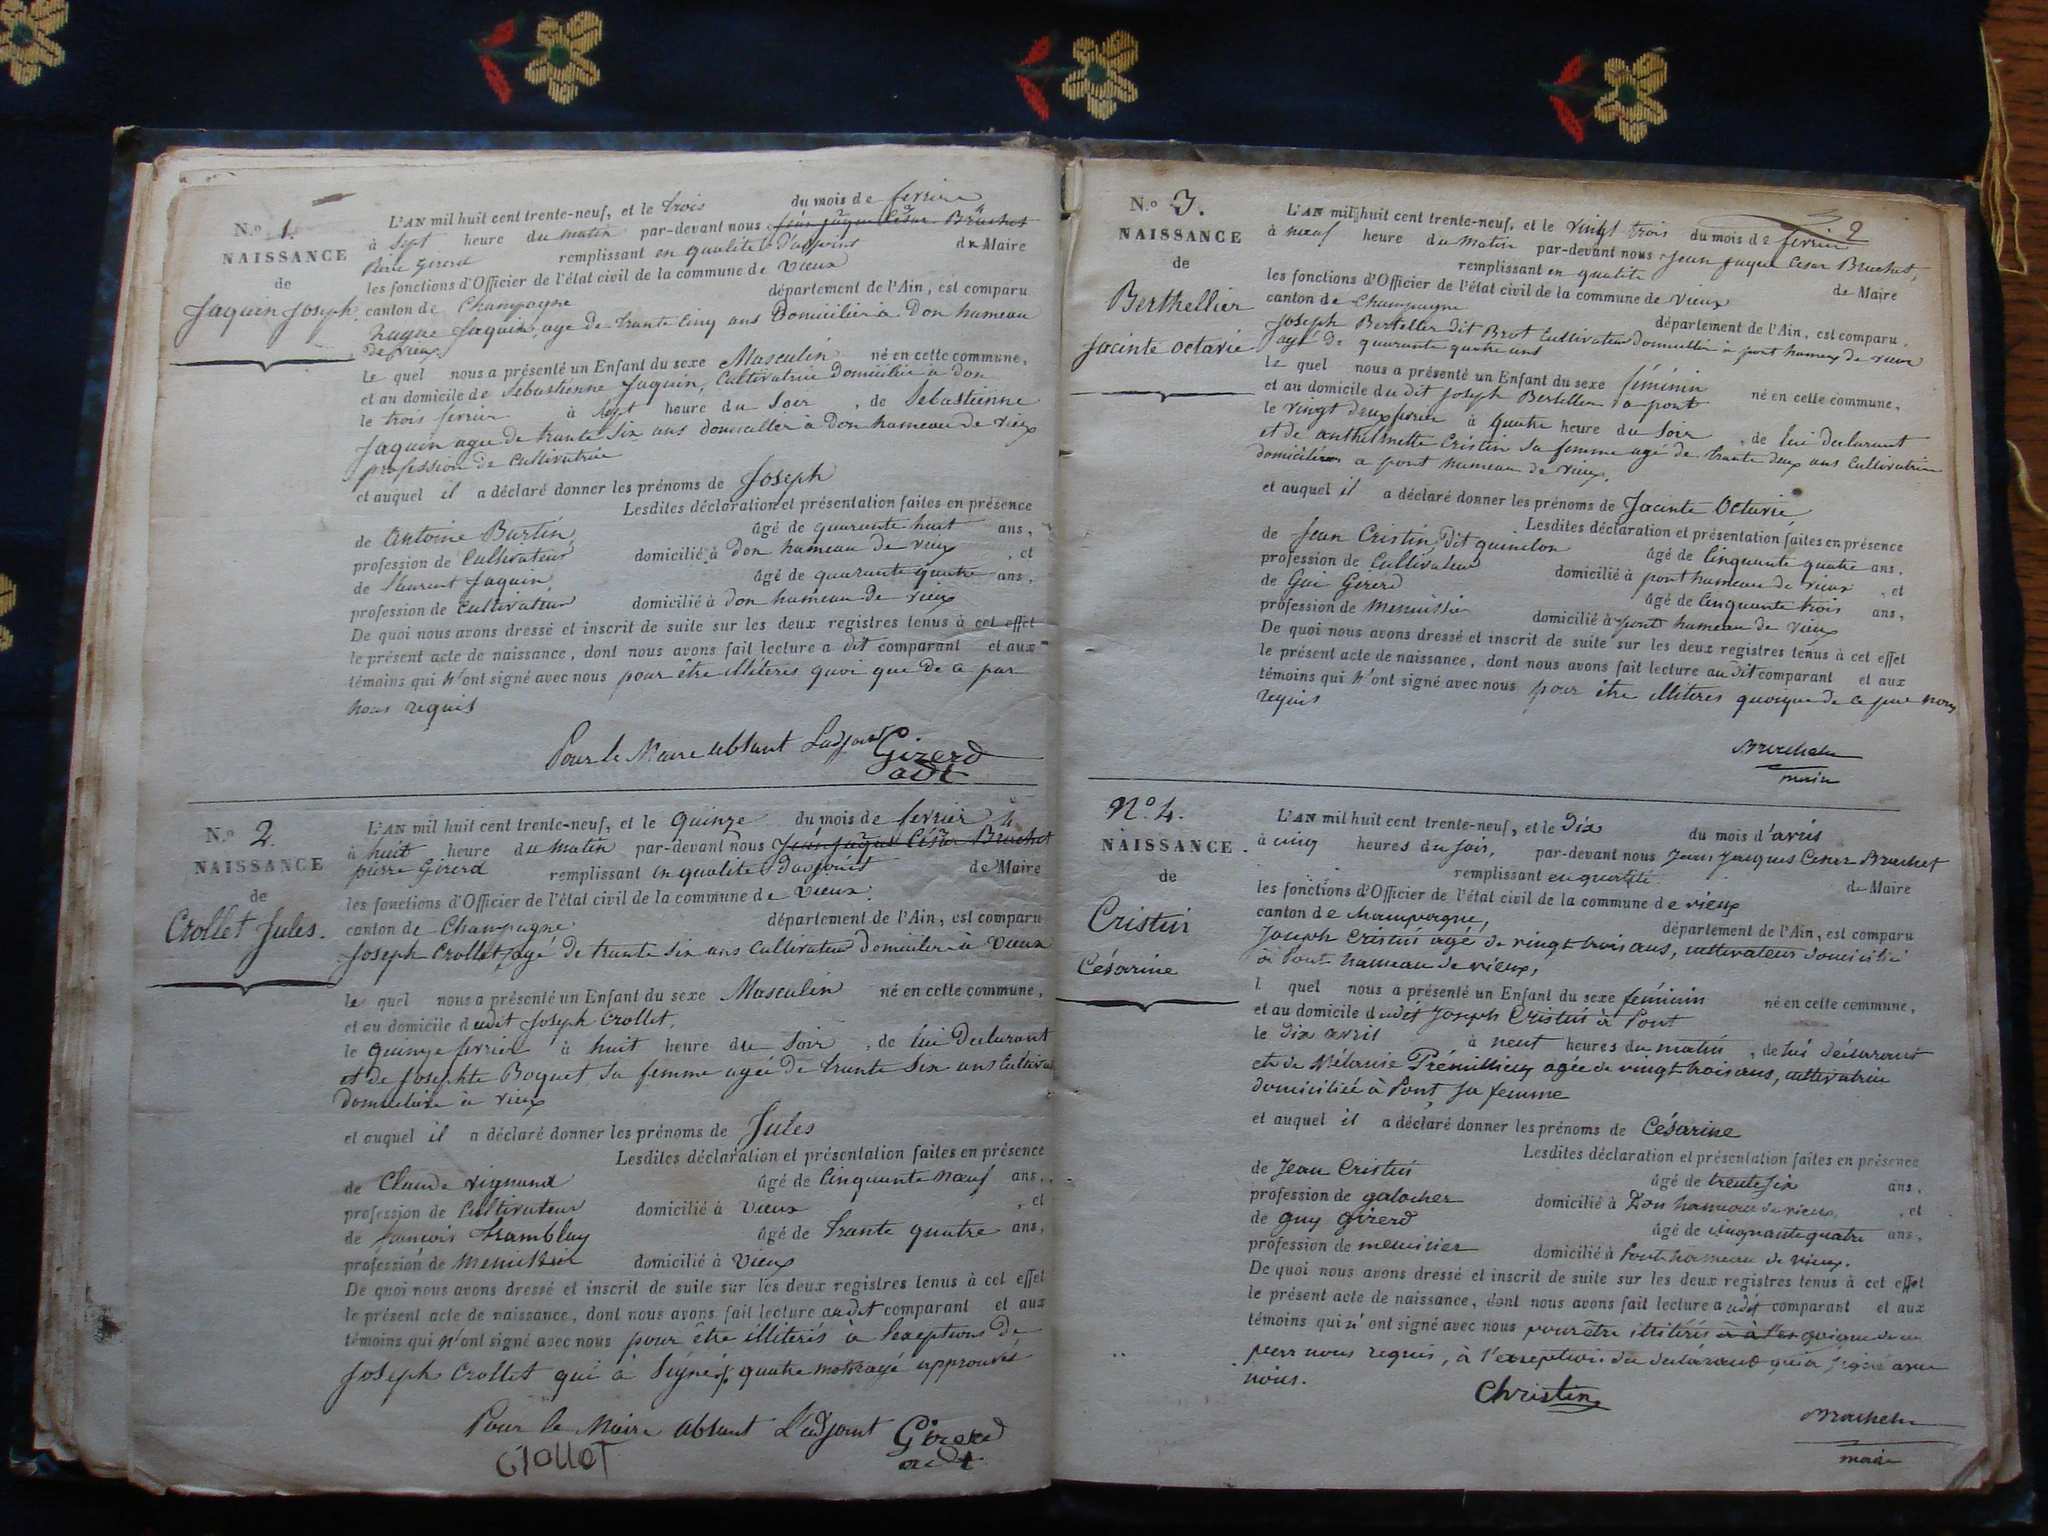 N.o 1.
NAISSANCE
de
Jaquin Joseph.
L'AN mil huit cent trente-neuf, et le trois du mois de fevrier
à sept heure du matin par-devant nous Jean Jaque César Bruchet
Pierre Gererd remplissant en qualité d'adjoint de Maire
les fonctions d'Officier de l'état civil de la commune de Vieux
canton de Champagne département de l'Ain, est comparu
Jaquin, age de trante cinq ans Domicilier à Don hameau
de vieux
le quel nous a présenté un Enfant du sexe Masculin né en cette commune,
et au domicile de Sebastienne Jaquin, Cultivatrice domicilier à don
le trois fevrier à sept heure du Soir, de Sebastienne
Jaquin agee de trante six ans domicilier à Don hameau de vieux
profession de Cultivatrice
et auquel il a déclaré donner les prénoms de Joseph
Lesdites déclaration et présentation faites en présence
de Antoine Burtin, âgé de quarante huit ans,
profession de Cultivateur domicilié à don hameau de vieux, et
de Laurent Jaquin âgé de quarante quatre ans,
profession de Cultivateur domicilié à don hameau de vieux
De quoi nous avons dressé et inscrit de suite sur les deux registres tenus à cet effet
le présent acte de naissance, dont nous avons fait lecture a dit comparant et aux
témoins qui n'ont signé avec nous pour être illiteres quoi que de ce par
nous requis
Pour le Maire absant Ladjoint Girerd
adt
N.o 2.
NAISSANCE
de
Crollet Jules.
L'AN mil huit cent trente-neuf, et le quinze du mois de fevrier
à huit heure du matin par-devant nous Jean Jaque César Bruchet
pierre Girerd remplissant en qualité d'adjoint de Maire
les fonctions d'Officier de l'état civil de la commune de Vieux
canton de Champagne département de l'Ain, est comparu
Joseph Crollet, agé de trante six ans Cultivateur domicilier à Vieux
le quel nous a présenté un Enfant du sexe Masculin né en cette commune,
et au domicile dudit Joseph Crollet,
le quinze fevrier à huit heure du Soir, de lui Declarant
et de Josephte Boquet sa femme agée de trante six ans
domicilier à vieux
et auquel il a déclaré donner les prénoms de Jules
Lesdites déclaration et présentation faites en présence
de Claude Vignand âgé de Cinquante nœuf ans,
profession de Cultivateur domicilié à Vieux, et
de francois tramblay âgé de trante quatre ans,
profession de Menuissier domicilié à Vieux
De quoi nous avons dressé et inscrit de suite sur les deux registres tenus à cet effet
le présent acte de naissance, dont nous avons fait lecture audit comparant et aux
témoins qui n'ont signé avec nous pour être illiterés à lexeptions de
Joseph Crollet qui à Signé quatre mots rayé approuvés
Pour le Maire absant L'adjoint Girerd
adt
Crollet
2
N.o 3.
NAISSANCE
de
Berthellier
Jacinte octavie
L'AN mil huit cent trente-neuf, et le vingt trois du mois de fevrier
à nœuf heure du matin par-devant nous Jean Jaque César Bruchet,
remplissant en qualité de Maire
les fonctions d'Officier de l'état civil de la commune de Vieux
canton de Champagne département de l'Ain, est comparu,
Joseph Berteller dit Brot Cultivateur domicilier à pont hameau de vieux
agé de quarante quatre ans
le quel nous a présenté un Enfant du sexe féminin né en cette commune,
et au domicile du dit Joseph Bertellier à pont
le vingt deux fevrier à quatre heure du Soir, de lui declarant
et de anthelmette Cristin sa femme agé de trante deux ans Cultivatrice
domicilier a pont hameau de vieux,
et auquel il a déclaré donner les prénoms de Jacinte Octavie
Lesdites déclaration et présentation faites en présence
de Jean Cristin, dit âgé de Cinquante quatre ans,
profession de Cultivateur domicilié à pont hameau de vieux, et
de Gui Gererd âgé de Cinquante trois ans,
profession de menuissier domicilié à pont hameau de vieux
De quoi nous avons dressé et inscrit de suite sur les deux registres tenus à cet effet
le présent acte de naissance, dont nous avons fait lecture au dit comparant et aux
témoins qui n'ont signé avec nous pour être illiteres quoique de ce par nous
requis
Bruchet
maire
N.o 4.
NAISSANCE
de
Cristin
Césarine
L'AN mil huit cent trente-neuf, et le dix du mois d'avril
à cinq heures du soir, par-devant nous Jean Jacques César Bruchet
remplissant en qualité de Maire
les fonctions d'Officier de l'état civil de la commune de vieux
canton de Champagne, département de l'Ain, est comparu
Joseph Cristin agé de vingt trois ans, cultivateur domicilié
à Pont hameau de vieux,
l quel nous a présenté un Enfant du sexe féminin né en cette commune,
et au domicile dudit Joseph Cristin à Pont
le dix avril à neuf heures du matin, de lui déclarant
et de Mélanie Prémillieu agée de vingt trois ans, cultivatrice
domiciliée à Pont, sa femme
et auquel il a déclaré donner les prénoms de Césarine
Lesdites déclaration et présentation faites en présence
de Jean Cristin âgé de trente six ans,
profession de galocher domicilié à Don hameau de vieux, et
de guy girerd âgé de cinquante quatre ans,
profession de menuisier domicilié à Pont hameau de vieux.
De quoi nous avons dressé et inscrit de suite sur les deux registres tenus à cet effet
le présent acte de naissance, dont nous avons fait lecture audit comparant et aux
témoins qui n'ont signé avec nous pour être illitérés à l'ex quique de ce
par nous requis, à l'exception du déclarant qui a signé avec
nous.
Christin
Bruchet
maire